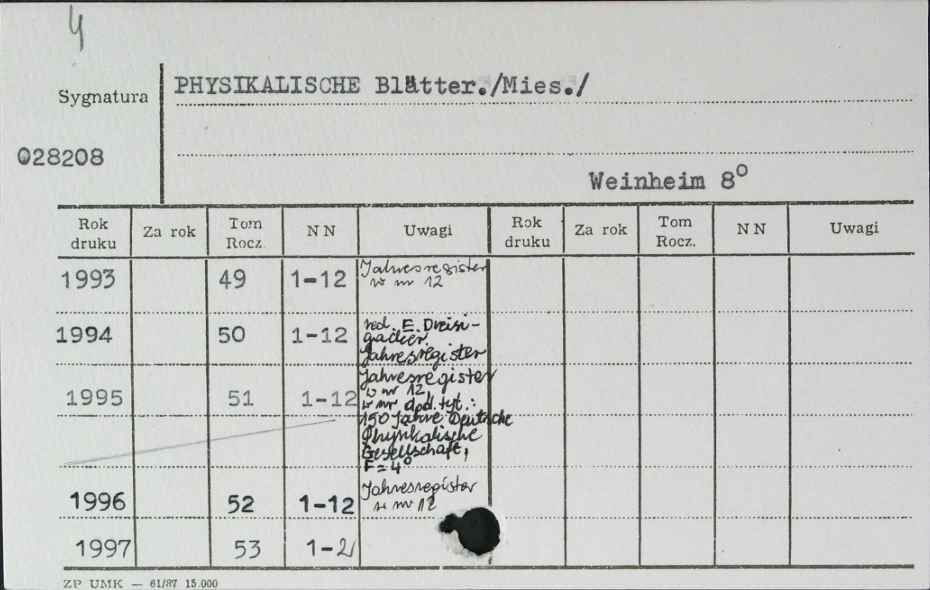 4
PHYSIKALISCHE Blätter./Mies./
Sygnatura
028208
Weinheim 8⁰
Rok druku Za rok Tom Rocz. NN Uwagi Rok druku Za rok Tom Rocz. NN Uwagi
1993 49 1-12 Jahresregister
w nr 12
1994 50 1-12 red. E. Dreisi-
gacker.
Jahresregister
1995 51 1-12 Jahresregister
w nr 12
w nr dod. tyt.:
150 Jahre Deutsche
Physikalische
Gesellschaft,
F=4⁰
1996 52 1-12 Jahresregister
w nr 12
1997 53 1-2/
ZP UMK — 61/87 15.000